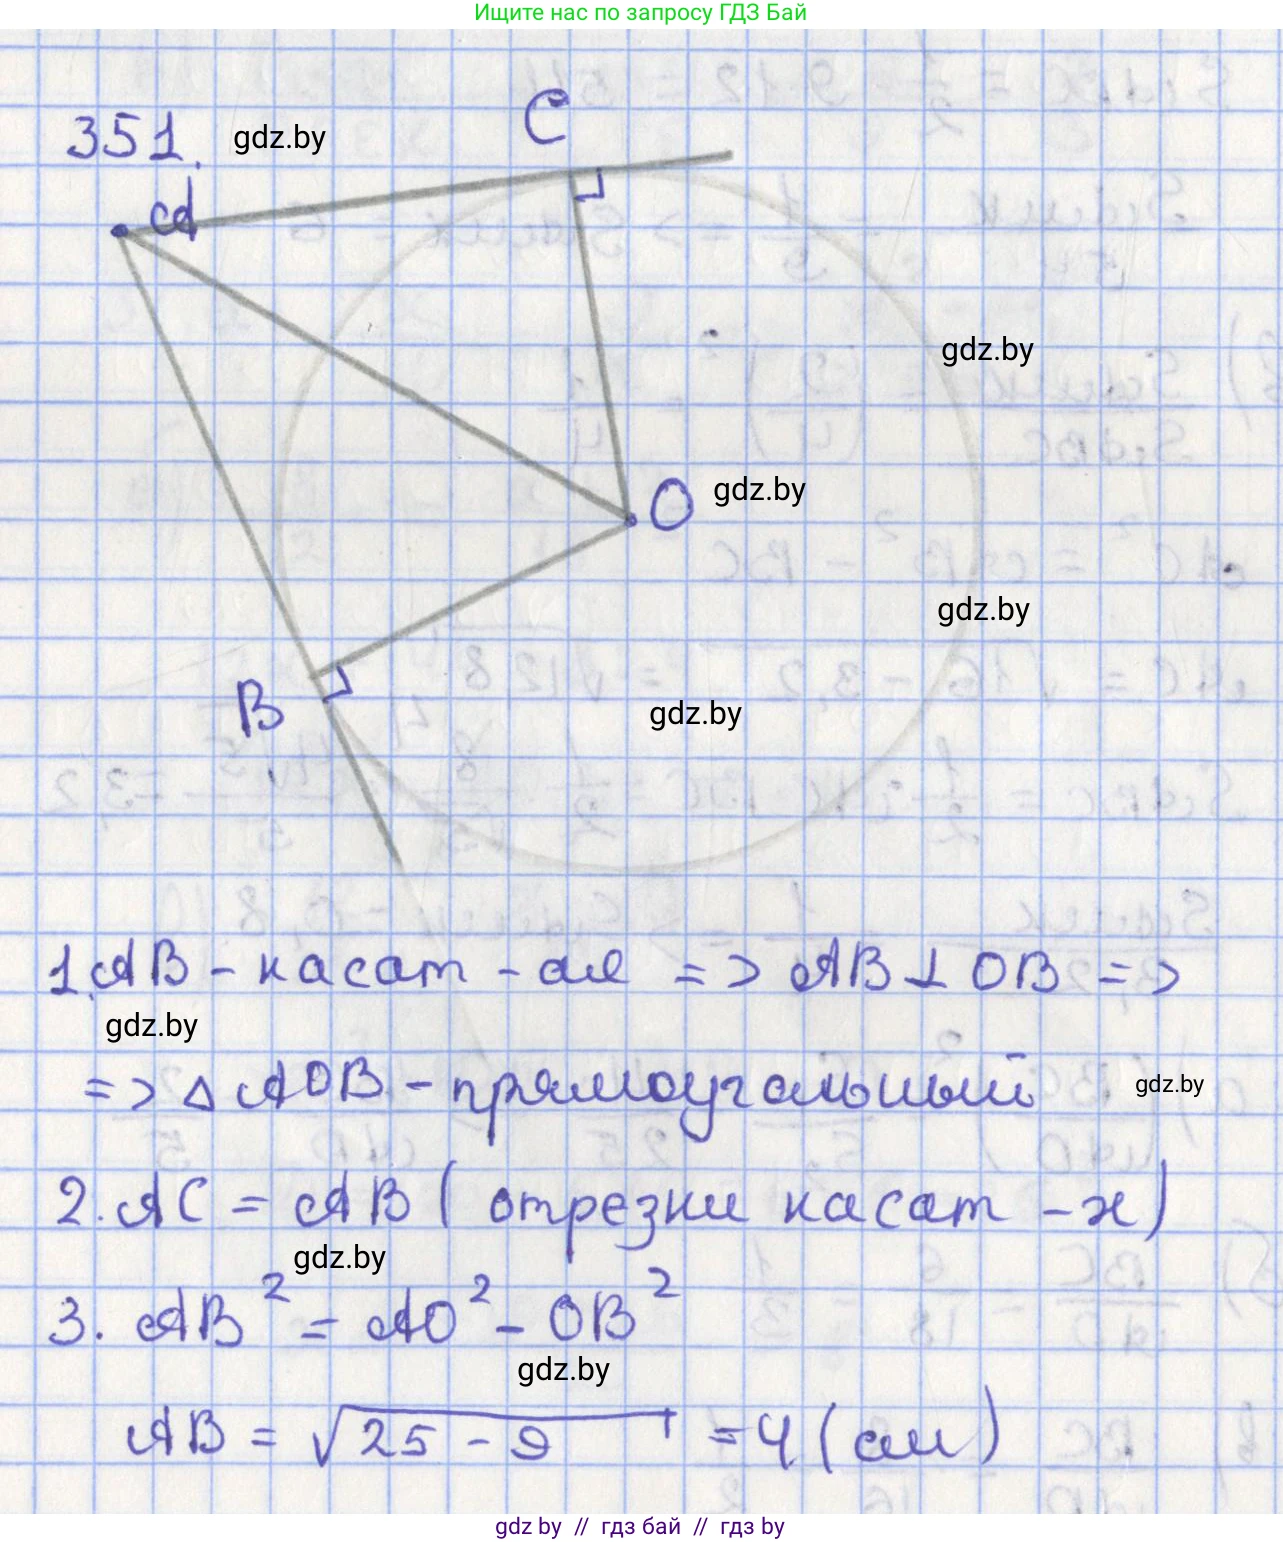 Ищите нас по запросу ГДЗ Бай
351. gdz.by
C
A
gdz.by
O gdz.by
gdz.by
B
gdz.by
1. AB - касат - ая => AB ⊥ OB =>
gdz.by
=> △ AOB - прямоугольный gdz.by
2. AC = AB ( отрезки касат - х )
gdz.by
3. AB² = AO² - OB²
gdz.by
AB = √25 - 9 = 4 ( см )
gdz by // гдз бай // гдз by